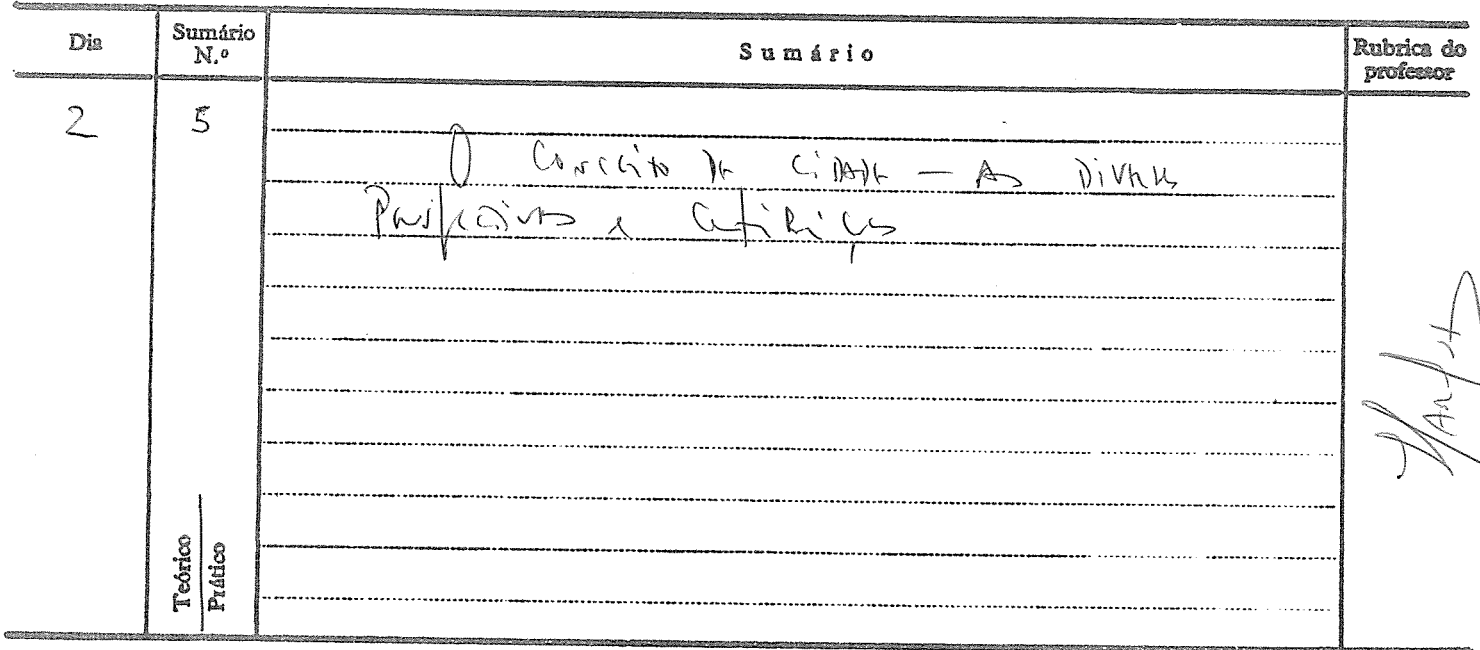 Dia
Sumário N.º
Sumário
Rubrica do professor
2
5
O Conceito de Cidade — As Diversas
Perspectivas e
Teórico
Prático